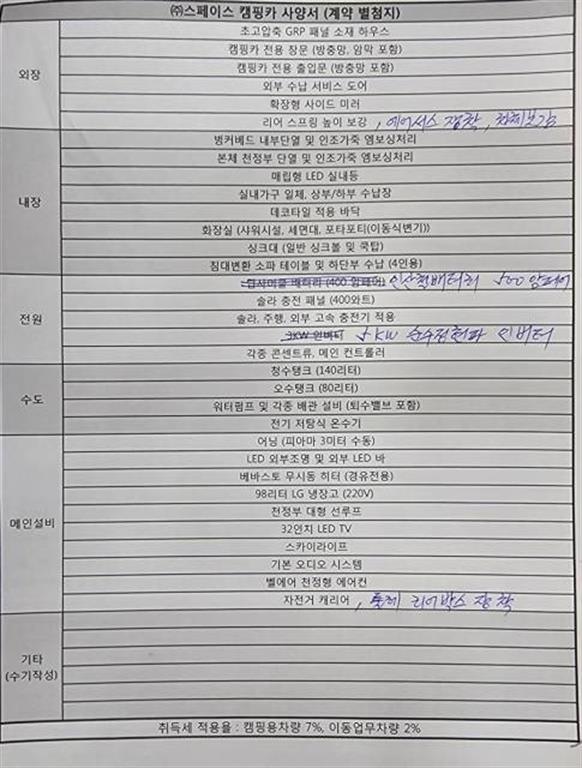 ㈜스페이스 캠핑카 사양서 (계약 별첨지)
외장
초고압축 GRP 패널 소재 하우스
캠핑카 전용 창문 (방충망, 암막 포함)
캠핑카 전용 출입문 (방충망 포함)
외부 수납 서비스 도어
확장형 사이드 미러
리어 스프링 높이 보강, 에어서스 장착, 하체보강
내장
벙커베드 내부단열 및 인조가죽 엠보싱처리
본체 천정부 단열 및 인조가죽 엠보싱처리
매립형 LED 실내등
실내가구 일체, 상부/하부 수납장
데코타일 적용 바닥
화장실 (샤워시설, 세면대, 포타포티(이동식변기))
싱크대 (일반 싱크볼 및 쿡탑)
침대변환 소파 테이블 및 하단부 수납 (4인용)
전원
딥사이클 배터리 (400 암페어) 인산철배터리 500 암페어
솔라 충전 패널 (400와트)
솔라, 주행, 외부 고속 충전기 적용
3KW 인버터 5KW 순수정현파 인버터
각종 콘센트류, 메인 컨트롤러
수도
청수탱크 (140리터)
오수탱크 (80리터)
워터펌프 및 각종 배관 설비 (퇴수밸브 포함)
전기 저탕식 온수기
메인설비
어닝 (피아마 3미터 수동)
LED 외부조명 및 외부 LED 바
베바스토 무시동 히터 (경유전용)
98리터 LG 냉장고 (220V)
천정부 대형 선루프
32인치 LED TV
스카이라이프
기본 오디오 시스템
벨에어 천정형 에어컨
자전거 캐리어, 리어박스 장착
기타
(수기작성)
취득세 적용율 : 캠핑용차량 7%, 이동업무차량 2%